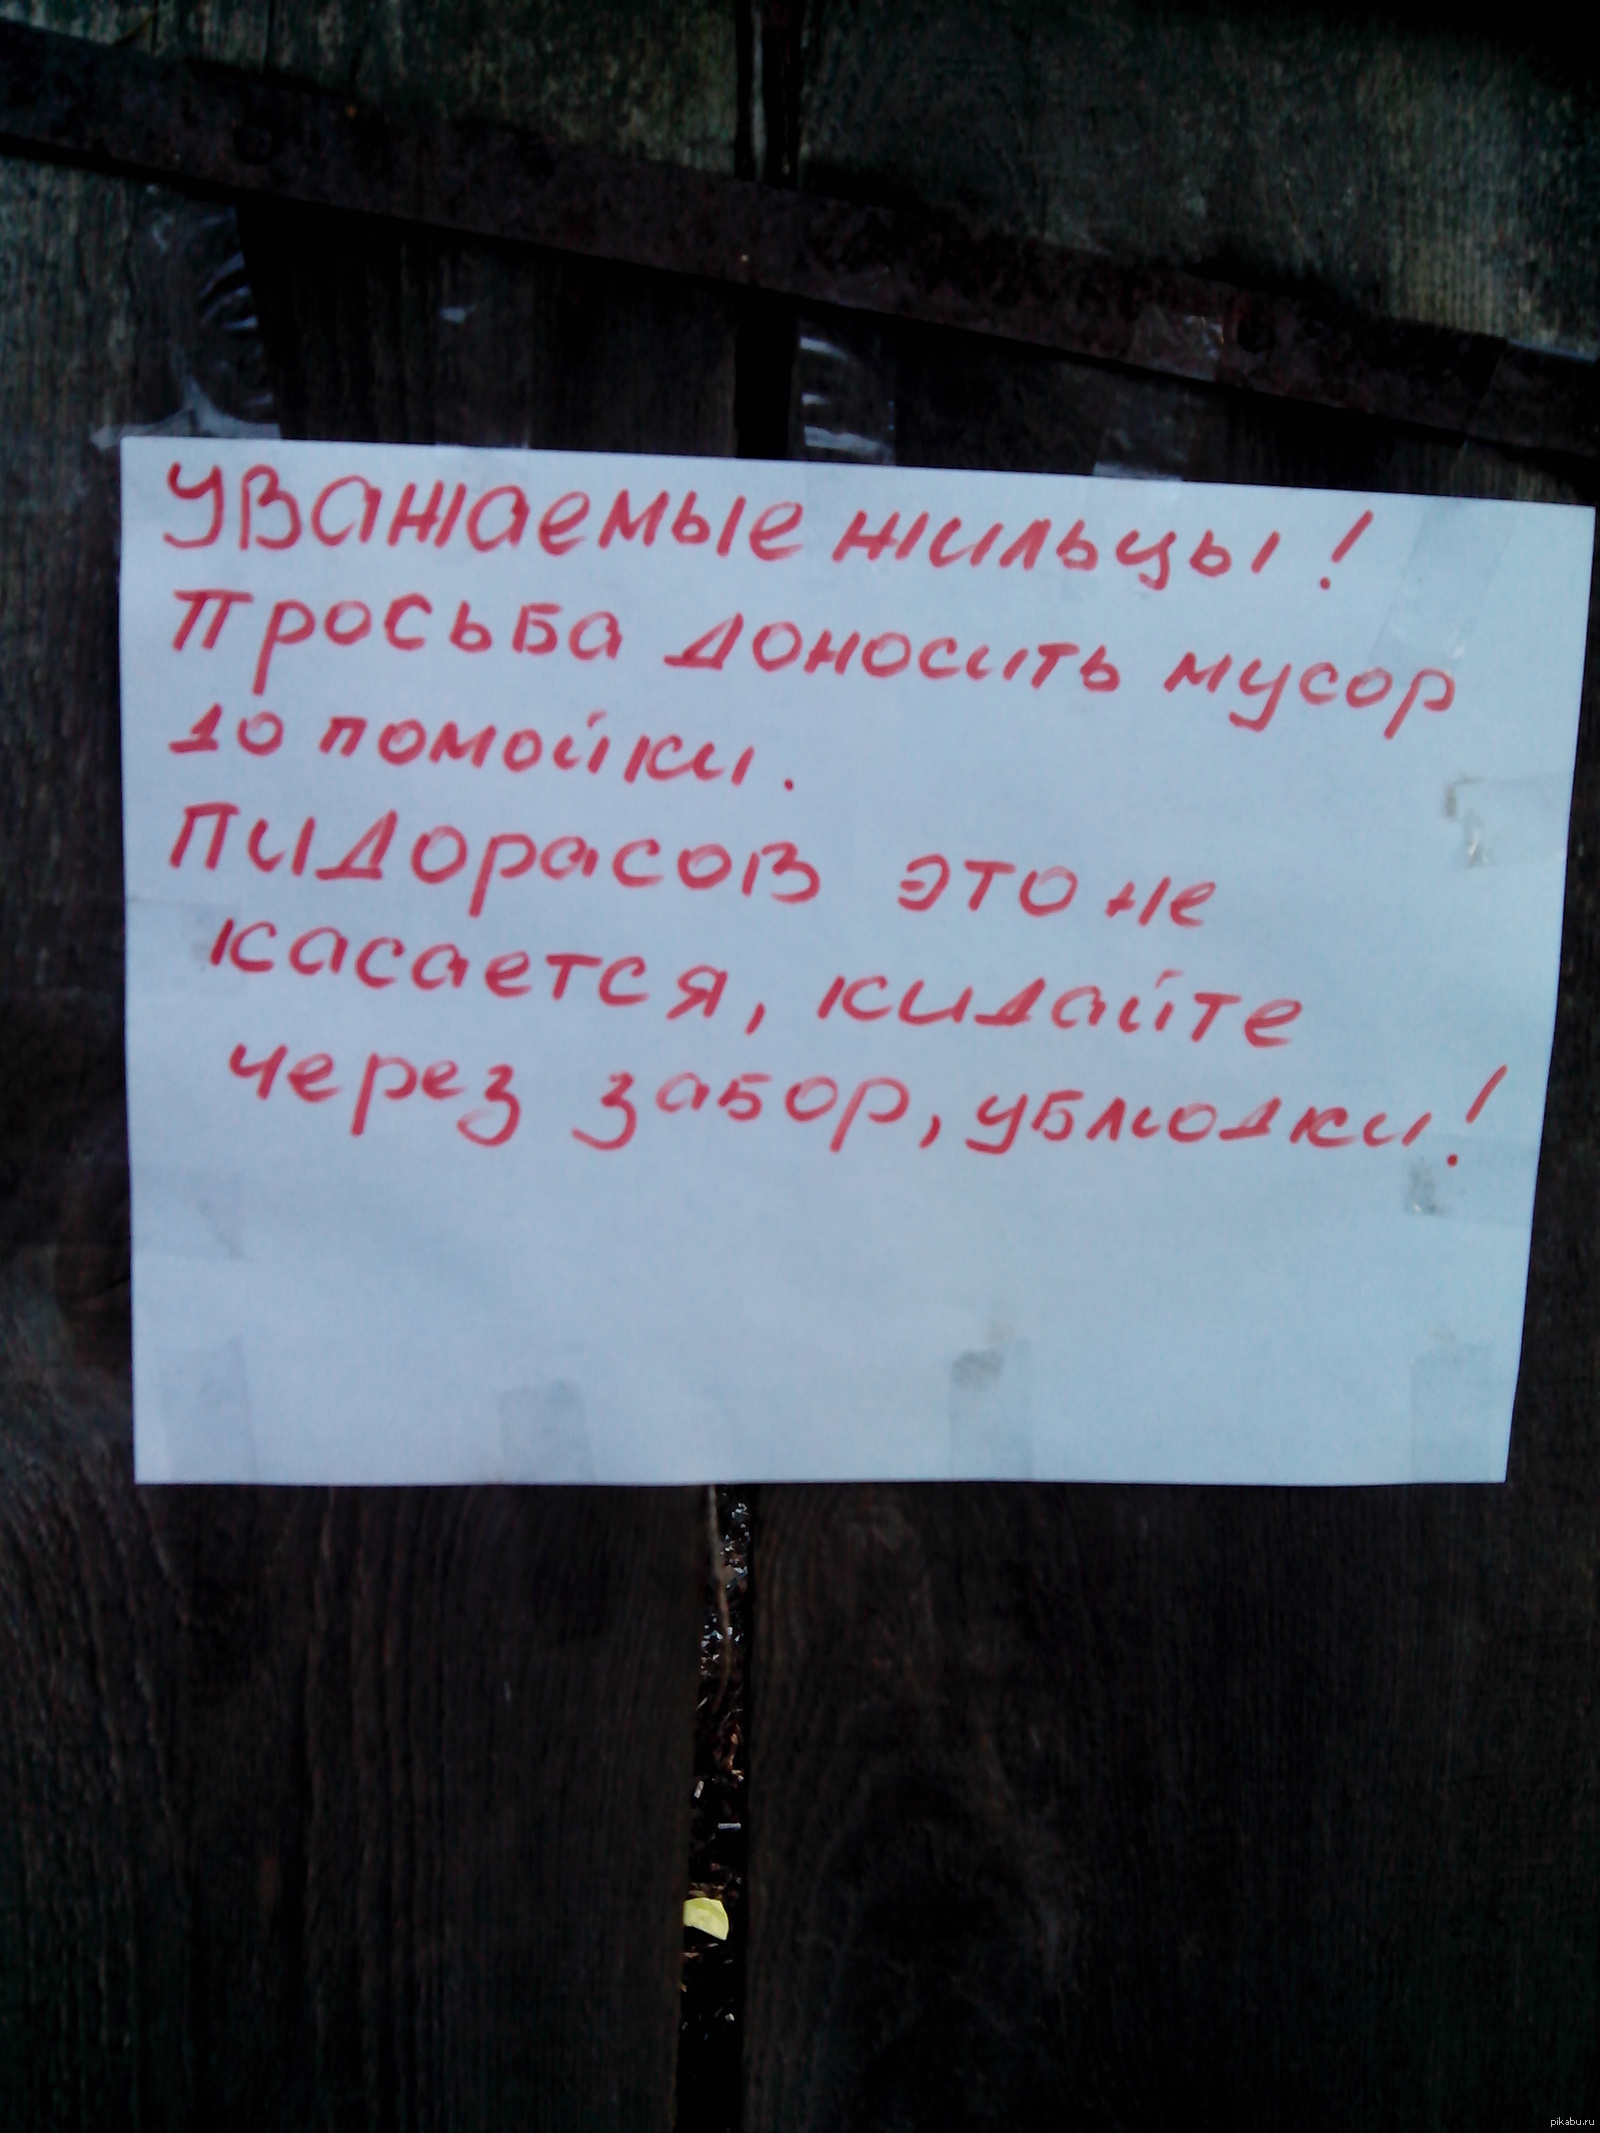 Уважаемые жильцы!
Просьба доносить мусор
до помойки.
Пидорасов это не
касается, кидайте
через забор, ублюдки!
pikabu.ru